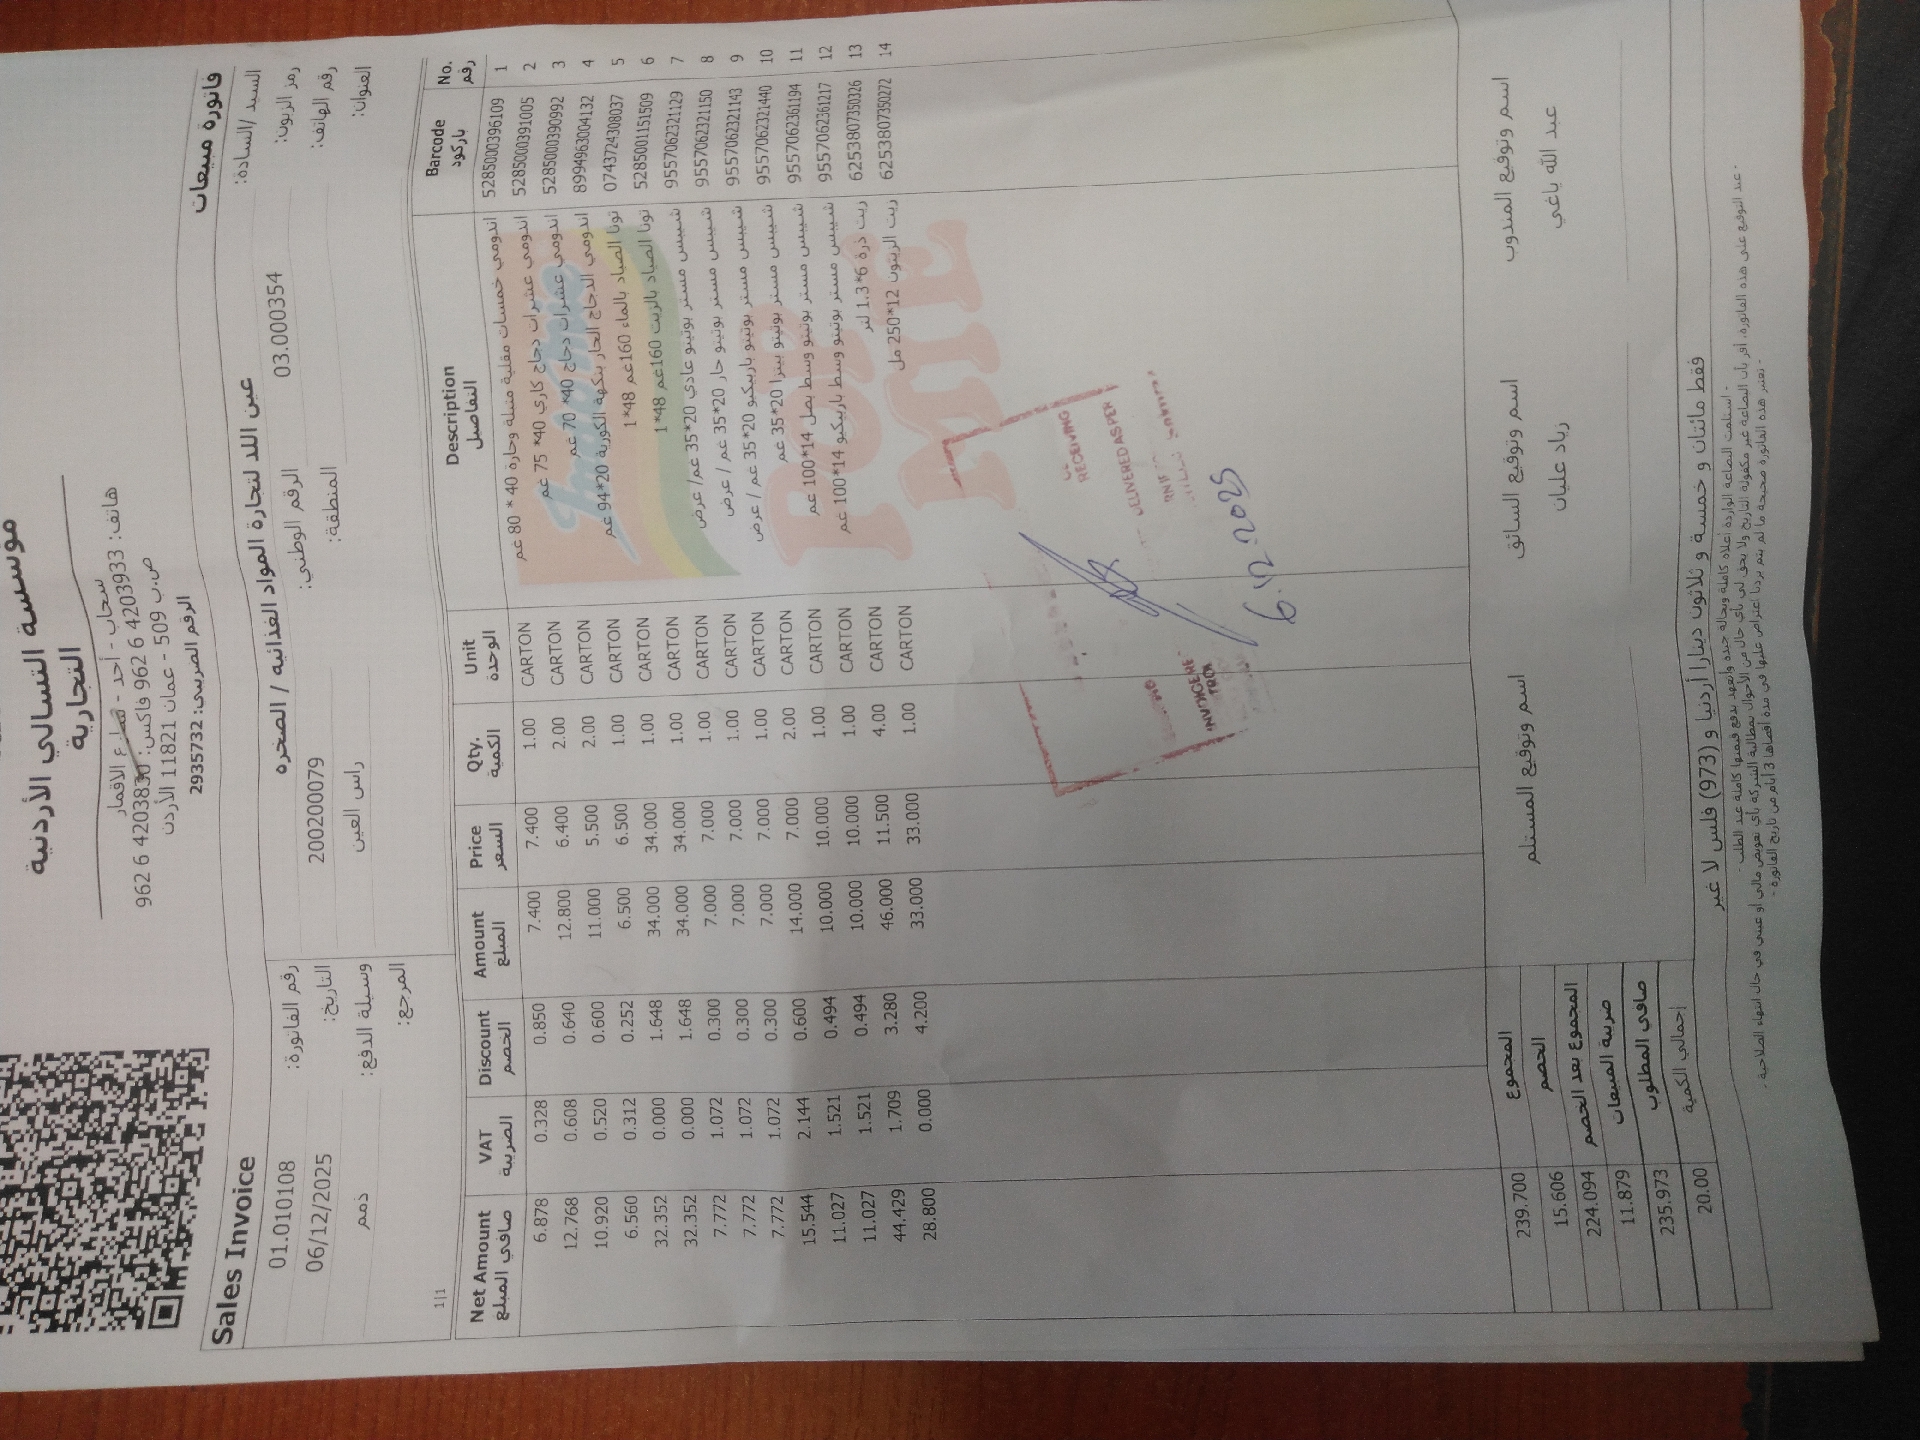 مؤسسة التسالي الأردنية
التجارية
سحاب - أحد - شارع الاقمار
هاتف: 4203933 6 962 فاكس: 4203830 6 962
ص.ب 509 - عمان 11821 الأردن
الرقم الضريبي: 2935732
فاتورة مبيعات Sales Invoice
السيد /السادة: عين اللد لتجارة المواد الغذائيه / الصخره
رقم الفاتورة: 01.010108
رمز الزبون: 03.000354
الرقم الوطني: 200200079
التاريخ: 06/12/2025
رقم الهاتف:
المنطقة: راس العين
وسيلة الدفع: ذمم
العنوان:
المرجع:
1|1
No. Barcode Description Unit Qty. Price Amount Discount VAT Net Amount
رقم باركود التفاصيل الوحدة الكمية السعر المبلغ الخصم الضريبة صافي المبلغ
1 5285000396109 اندومي خمسات مقلية متبلة وحارة 40 * 80 غم CARTON 1.00 7.400 7.400 0.850 0.328 6.878
2 5285000391005 اندومي عشرات دجاج كاري 40* 75 غم CARTON 2.00 6.400 12.800 0.640 0.608 12.768
3 5285000390992 اندومي عشرات دجاج 40* 70 غم CARTON 2.00 5.500 11.000 0.600 0.520 10.920
4 8994963004132 اندومي الدجاج الحار بنكهة الكورية 20*94 غم CARTON 1.00 6.500 6.500 0.252 0.312 6.560
5 074372430803​7 تونا الصياد بالماء 160غم 48*1 CARTON 1.00 34.000 34.000 1.648 0.000 32.352
6 5285001151509 تونا الصياد بالزيت 160غم 48*1 CARTON 1.00 34.000 34.000 1.648 0.000 32.352
7 9557062321129 شيبس مستر بوتيتو عادي 20*35 غم/ عرض CARTON 1.00 7.000 7.000 0.300 1.072 7.772
8 9557062321150 شيبس مستر بوتيتو حار 20*35 غم / عرض CARTON 1.00 7.000 7.000 0.300 1.072 7.772
9 9557062321143 شيبس مستر بوتيتو باربيكيو 20*35 غم / عرض CARTON 1.00 7.000 7.000 0.300 1.072 7.772
10 9557062321440 شيبس مستر بوتيتو بيتزا 20*35 غم CARTON 2.00 7.000 14.000 0.600 2.144 15.544
11 9557062361194 شيبس مستر بوتيتو وسط بصل 14*100 غم CARTON 1.00 10.000 10.000 0.494 1.521 11.027
12 9557062361217 شيبس مستر بوتيتو وسط باربيكيو 14*100 غم CARTON 1.00 10.000 10.000 0.494 1.521 11.027
13 6253807350326 زيت ذرة 6*1.3 لتر CARTON 4.00 11.500 46.000 3.280 1.709 44.429
14 6253807350272 زيت الزيتون 12*250 مل CARTON 1.00 33.000 33.000 4.200 0.000 28.800
Indomie
POP
MIE
RECEIVING
DELIVERED AS PER
INVOICE
6.12.2025
اسم وتوقيع المندوب اسم وتوقيع السائق اسم وتوقيع المستلم
عبد الله ياغي زياد عليان
المجموع 239.700
الخصم 15.606
المجموع بعد الخصم 224.094
ضريبة المبيعات 11.879
صافي المطلوب 235.973
إجمالي الكمية 20.00
فقط مائتان و خمسة و ثلاثون دينارا أردنيا و (973) فلس لا غير
- استلمت البضاعة الواردة أعلاه كاملة وبحالة جيدة واتعهد بدفع قيمتها كاملة عند الطلب -
- عند التوقيع على هذه الفاتورة، أقر بأن البضاعة غير مكفولة التاريخ ولا يحق لي بأي حال من الأحوال بمطالبة الشركة بأي تعويض مالي أو عيني في حال انتهاء الصلاحية -
- تعتبر هذه الفاتورة صحيحة ما لم يتم يردنا اعتراض عليها في مدة أقصاها 3 أيام من تاريخ الفاتورة -